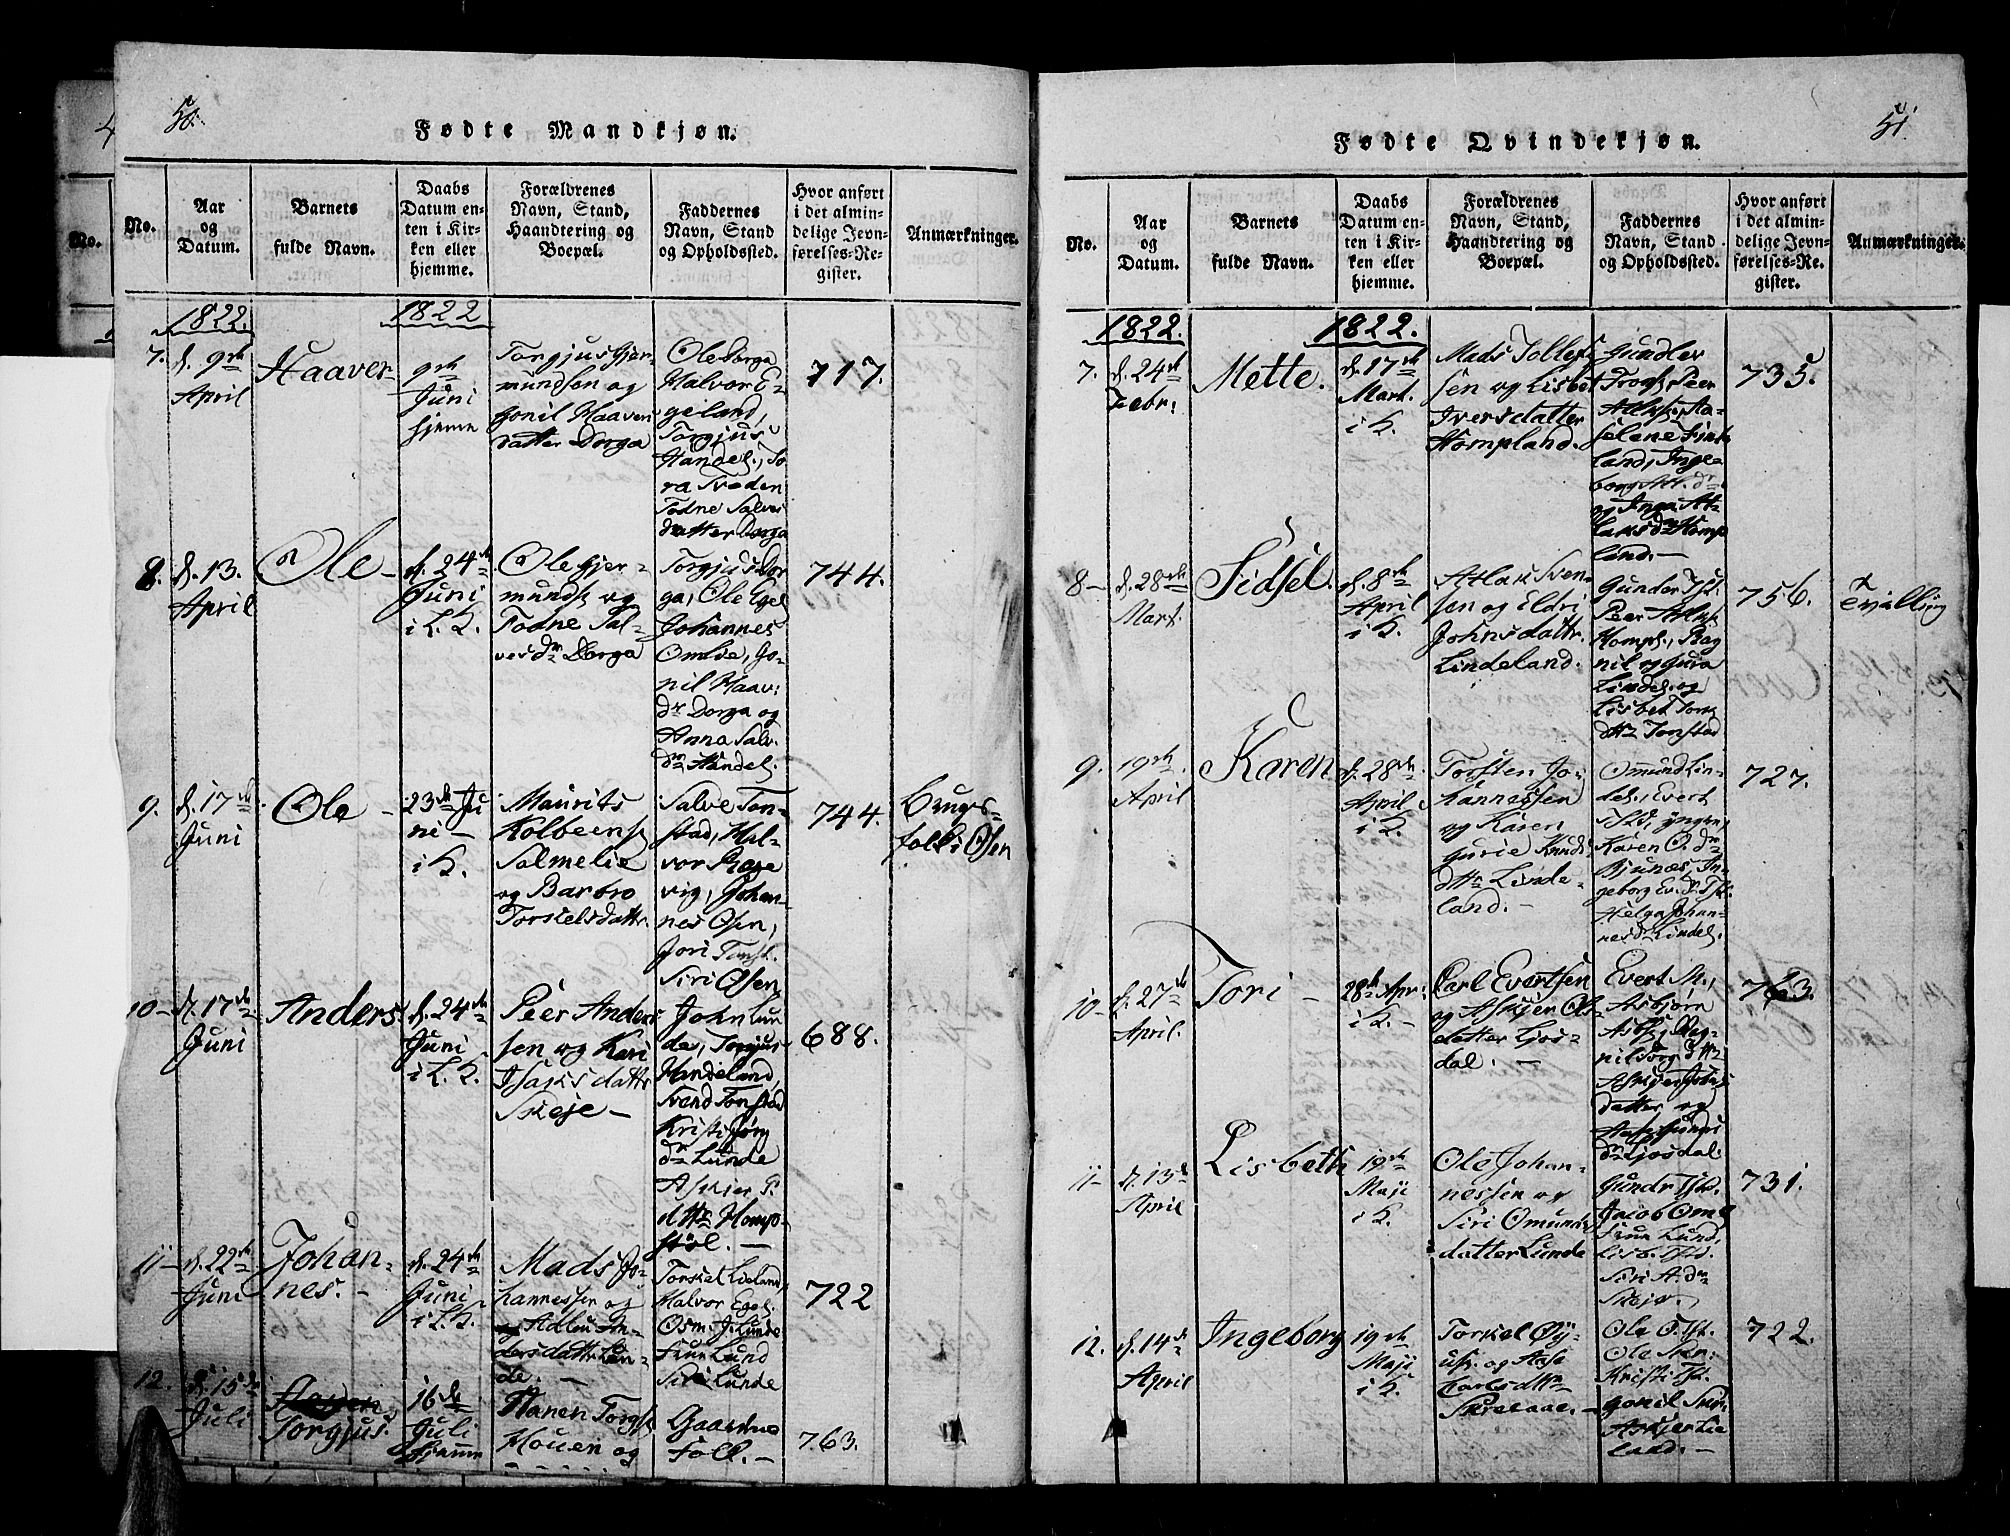 50.
Fødte Mandkjøn.
No.
Aar og Datum.
Barnets fulde Navn.
Daabs Datum enten i Kirken eller hjemme.
Forældrenes Navn, Stand, Haandtering og Boepæl.
Faddernes Navn, Stand og Opholdssted.
Hvor anført i det almindelige Jevnførelses-Register.
Anmærkninger.
1822.
1822
7.
d. 9de
April
Haaver
9de
Juni
hjeme
Torgjus Gjer-
mundsen og
Gonil Haavers
datter Dorga
Ole Dorga
Halvor E-
geland,
Torgjus
Handel., To
ra Svoden
Todne Salves
datter Dorga
717.
8.
d. 13.
April
Ole
d. 24de
Juni
i L. K.
Ole Gjer-
munds. og
Todne Sal-
vesdr. Dorga
Torgjus Dor
ga, Ole Egel
Johannes
Omlie, Go-
nil Haav:
dr Dorga og
Anna Salv.
dr. Handel.
744.
9.
d. 17de
Juni
Ole
23de Ju
ni
i K.
Maurits
Kolbeens.
Salmelie
og Barbro
Torkelsdattr.
Salve Ton-
stad, Hal-
vor Rage
vig, Johan-
nes Osen,
Jori Tonst.
Siri Osen
744.
Brugs-
folk i Osen
10
d. 17de
Juni
Anders
d. 24de
Juni
i L. K.
Peer Anders
sen og Kari
Isaksdattr
Skeje
John Lun
de, Torgjus
Handeland,
Svend Tonstad
Kristi Jørg
dr. Lunde
Askjer P.
dttr. Homp-
støl.
688.
11
d. 22de
Juni
Johan-
nes.
d. 24de
Juni
i L. K.
Mads Jo-
hannessen og
Adlen An-
dersdattr Lun-
de.
Torkel Lieland,
Halvor Egel.
Osm. J. Lunde
Frun Lund
Siri Lunde
722
12.
d. 15de
Juli
Torgjus.
16de
Juli
hjemme
Hanen Torgs.
Houen og
Gaardens
Folk.
763.
51.
Fødte Qvindekjøn.
No.
Aar og Datum.
Barnets fulde Navn.
Daabs Datum enten i Kirken eller hjemme.
Forældrenes Navn, Stand, Haandtering og Boepæl.
Faddernes Navn, Stand og Opholdssted.
Hvor anført i det almindelige Jevnførelses-Register.
Anmærkninger.
1822.
1822.
7.
d. 24de
Febr:
Mette.
d. 17de
Mart.
i K.
Mads Tollefs
sen og Lisbet
Iversdatter
Hompland.
Gundler
Trogs. Peer
Atlaks. Aa-
selene Fint
land, Inge-
borg Atl. dr.
og Inga At-
laksdr. Homp
land.
735.
8
d. 28de
Mart.
Sidsel.
d. 8de
April
i K.
Atlak Sven-
sen og Eldri
Johnsdattr.
Lindeland.
Gunder Tst.
Peer Atlaks.
Hompl., Rag
nil og Gura
Lindel. og
Lisbet Tons
dttr Tonstad
756.
Tvilling
9.
19de
April
Karen
d. 28de
April
i K.
Torsten Jo-
hannessen
og Karen
Gurie Knuds
dttr Linde-
land.
Ommund Lin-
del., Evert
Tstd, yngre,
Karen O. dr
Bjunes, In-
geborg Ev. dr Tst.
Helga Johan-
nesdr. Lindel.
727.
10
d. 27de
April.
Tori
28de Apr:
i K.
Carl Evertsen
og Askjen Ols-
datter Ljos-
dal.
Evert M.,
Asbjørn
763.
11
d. 13de
April
Lisbeth
19de
Maji
i K.
Ole Johan-
nessen og
Siri Omunds
datter Lunde
Gundr Tstd.
Jacob Oml.
Frun Lund,
Lisb. Tstd.
Siri A. dr
Skeje.
731.
12.
d. 14de
April
Ingeborg
19de
Maji
i K.
Torkel Øy-
us. og Aase
Carlsdttr
Skreaae.
Ole O. Tst.
Kristi Tst.
Gonil
Askjer Lie
land.
722.